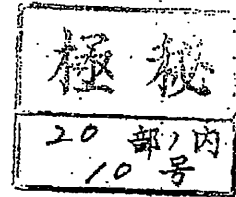 極秘
20部ノ内
10号